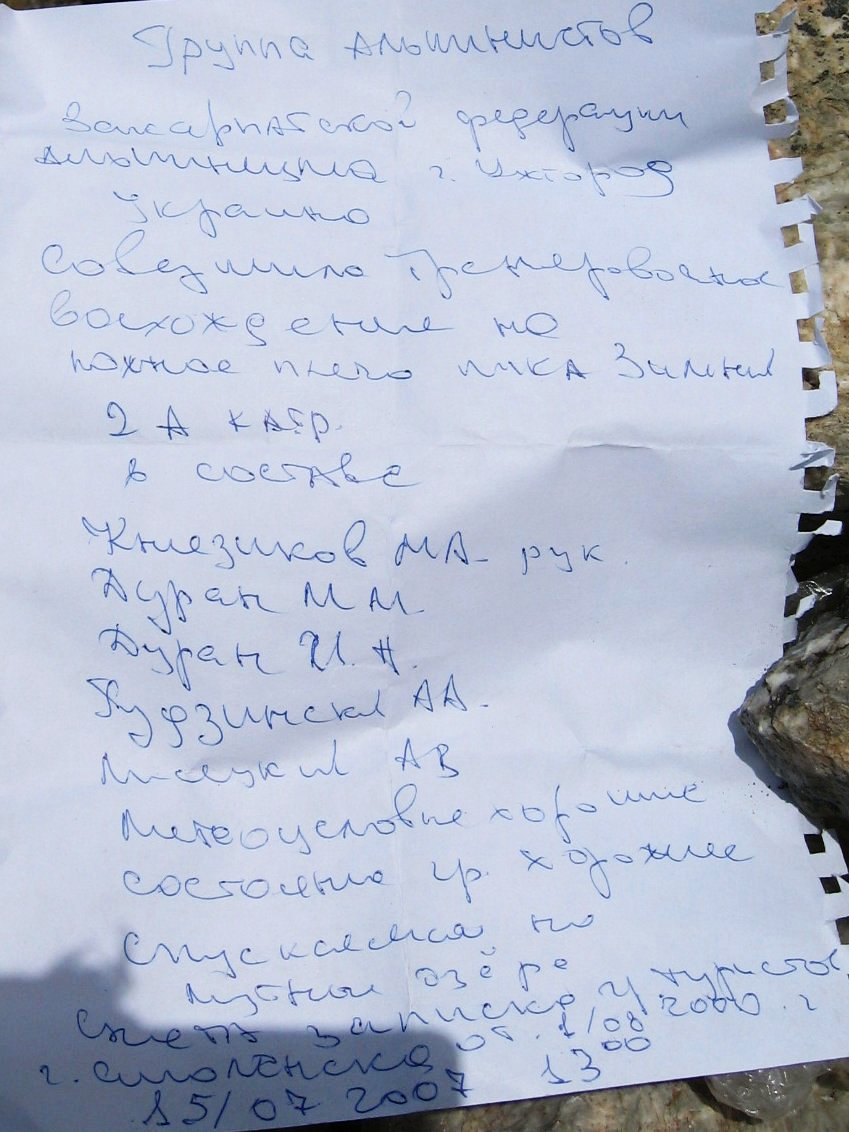 Группа альпинистов
Закарпатской федерации
альпинизма г. Ужгород
Украина
Совершила тренеровочное
восхождение на
южное плечо пика Зимний
2А кат.
в составе
Князиков МА - рук.
Дуран ММ
Дуран И.Н.
Гудзинский АА.
Лисецкий АВ
Метеоусловие хорошие
состояние гр. хорошее
спускаемся на
мутные озёра
снета записка гр туристов
г. смоленска от 1/08 2000 г
15/07 2007 13 00